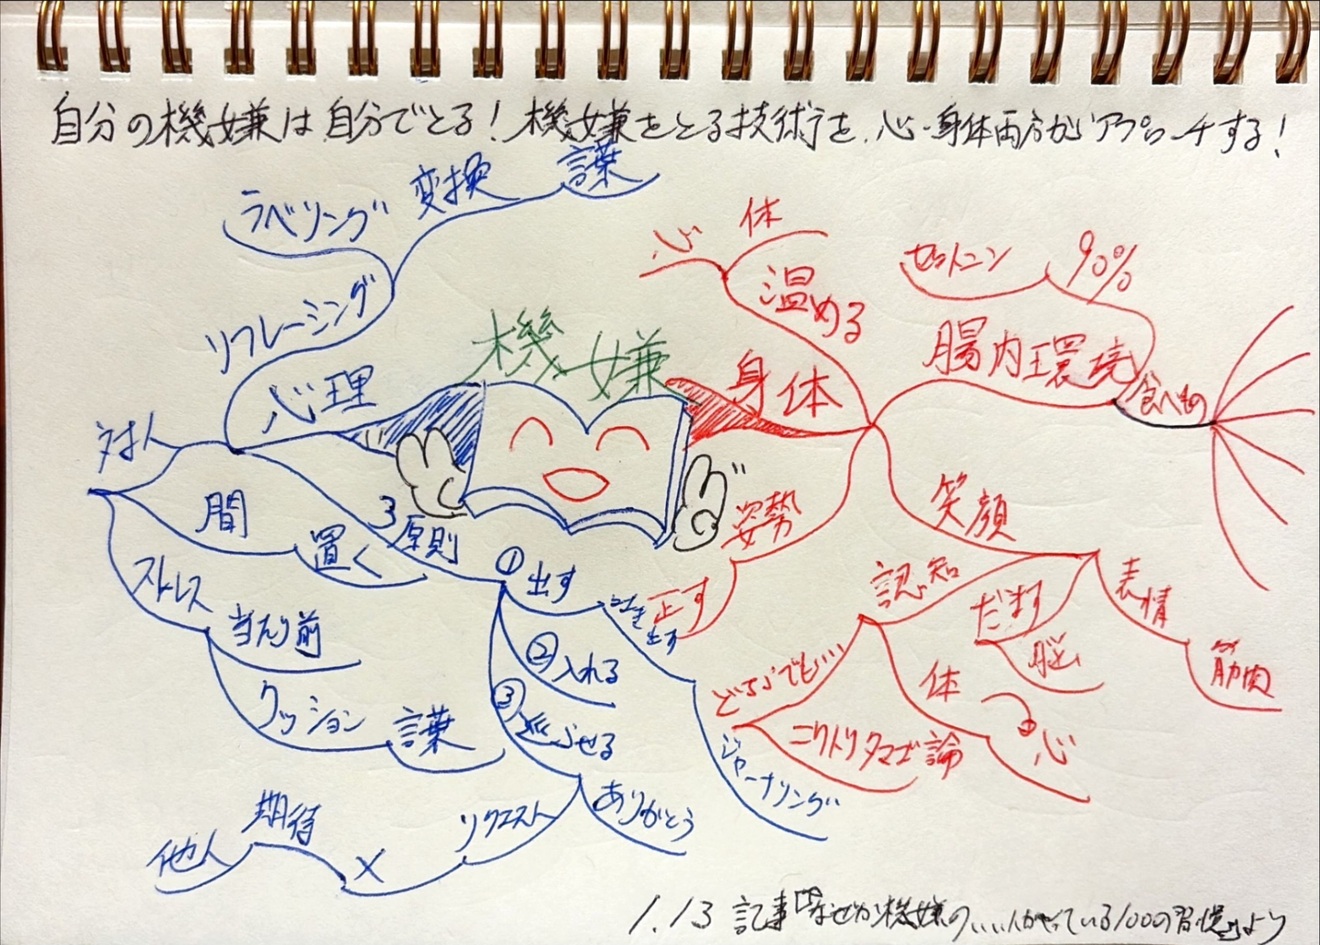 自分の機嫌は自分でとる！機嫌をとる技術を、心・身体両方からアプローチする！
機嫌
心理
リフレーミング
ラベリング
変換
言葉
対人
間
置く
ストレス
当たり前
クッション
言葉
3原則
①出す
吐き出す
ジャーナリング
②入れる
③巡らせる
ありがとう
リクエスト
×
期待
他人
身体
温める
心
体
腸内環境
セロトニン
90%
食べもの
笑顔
表情
筋肉
だます
脳
認知
体
心
どちらでも…
ニワトリタマゴ論
姿勢
正す
1.13 記事『なぜか機嫌のいい人がやっている100の習慣』より